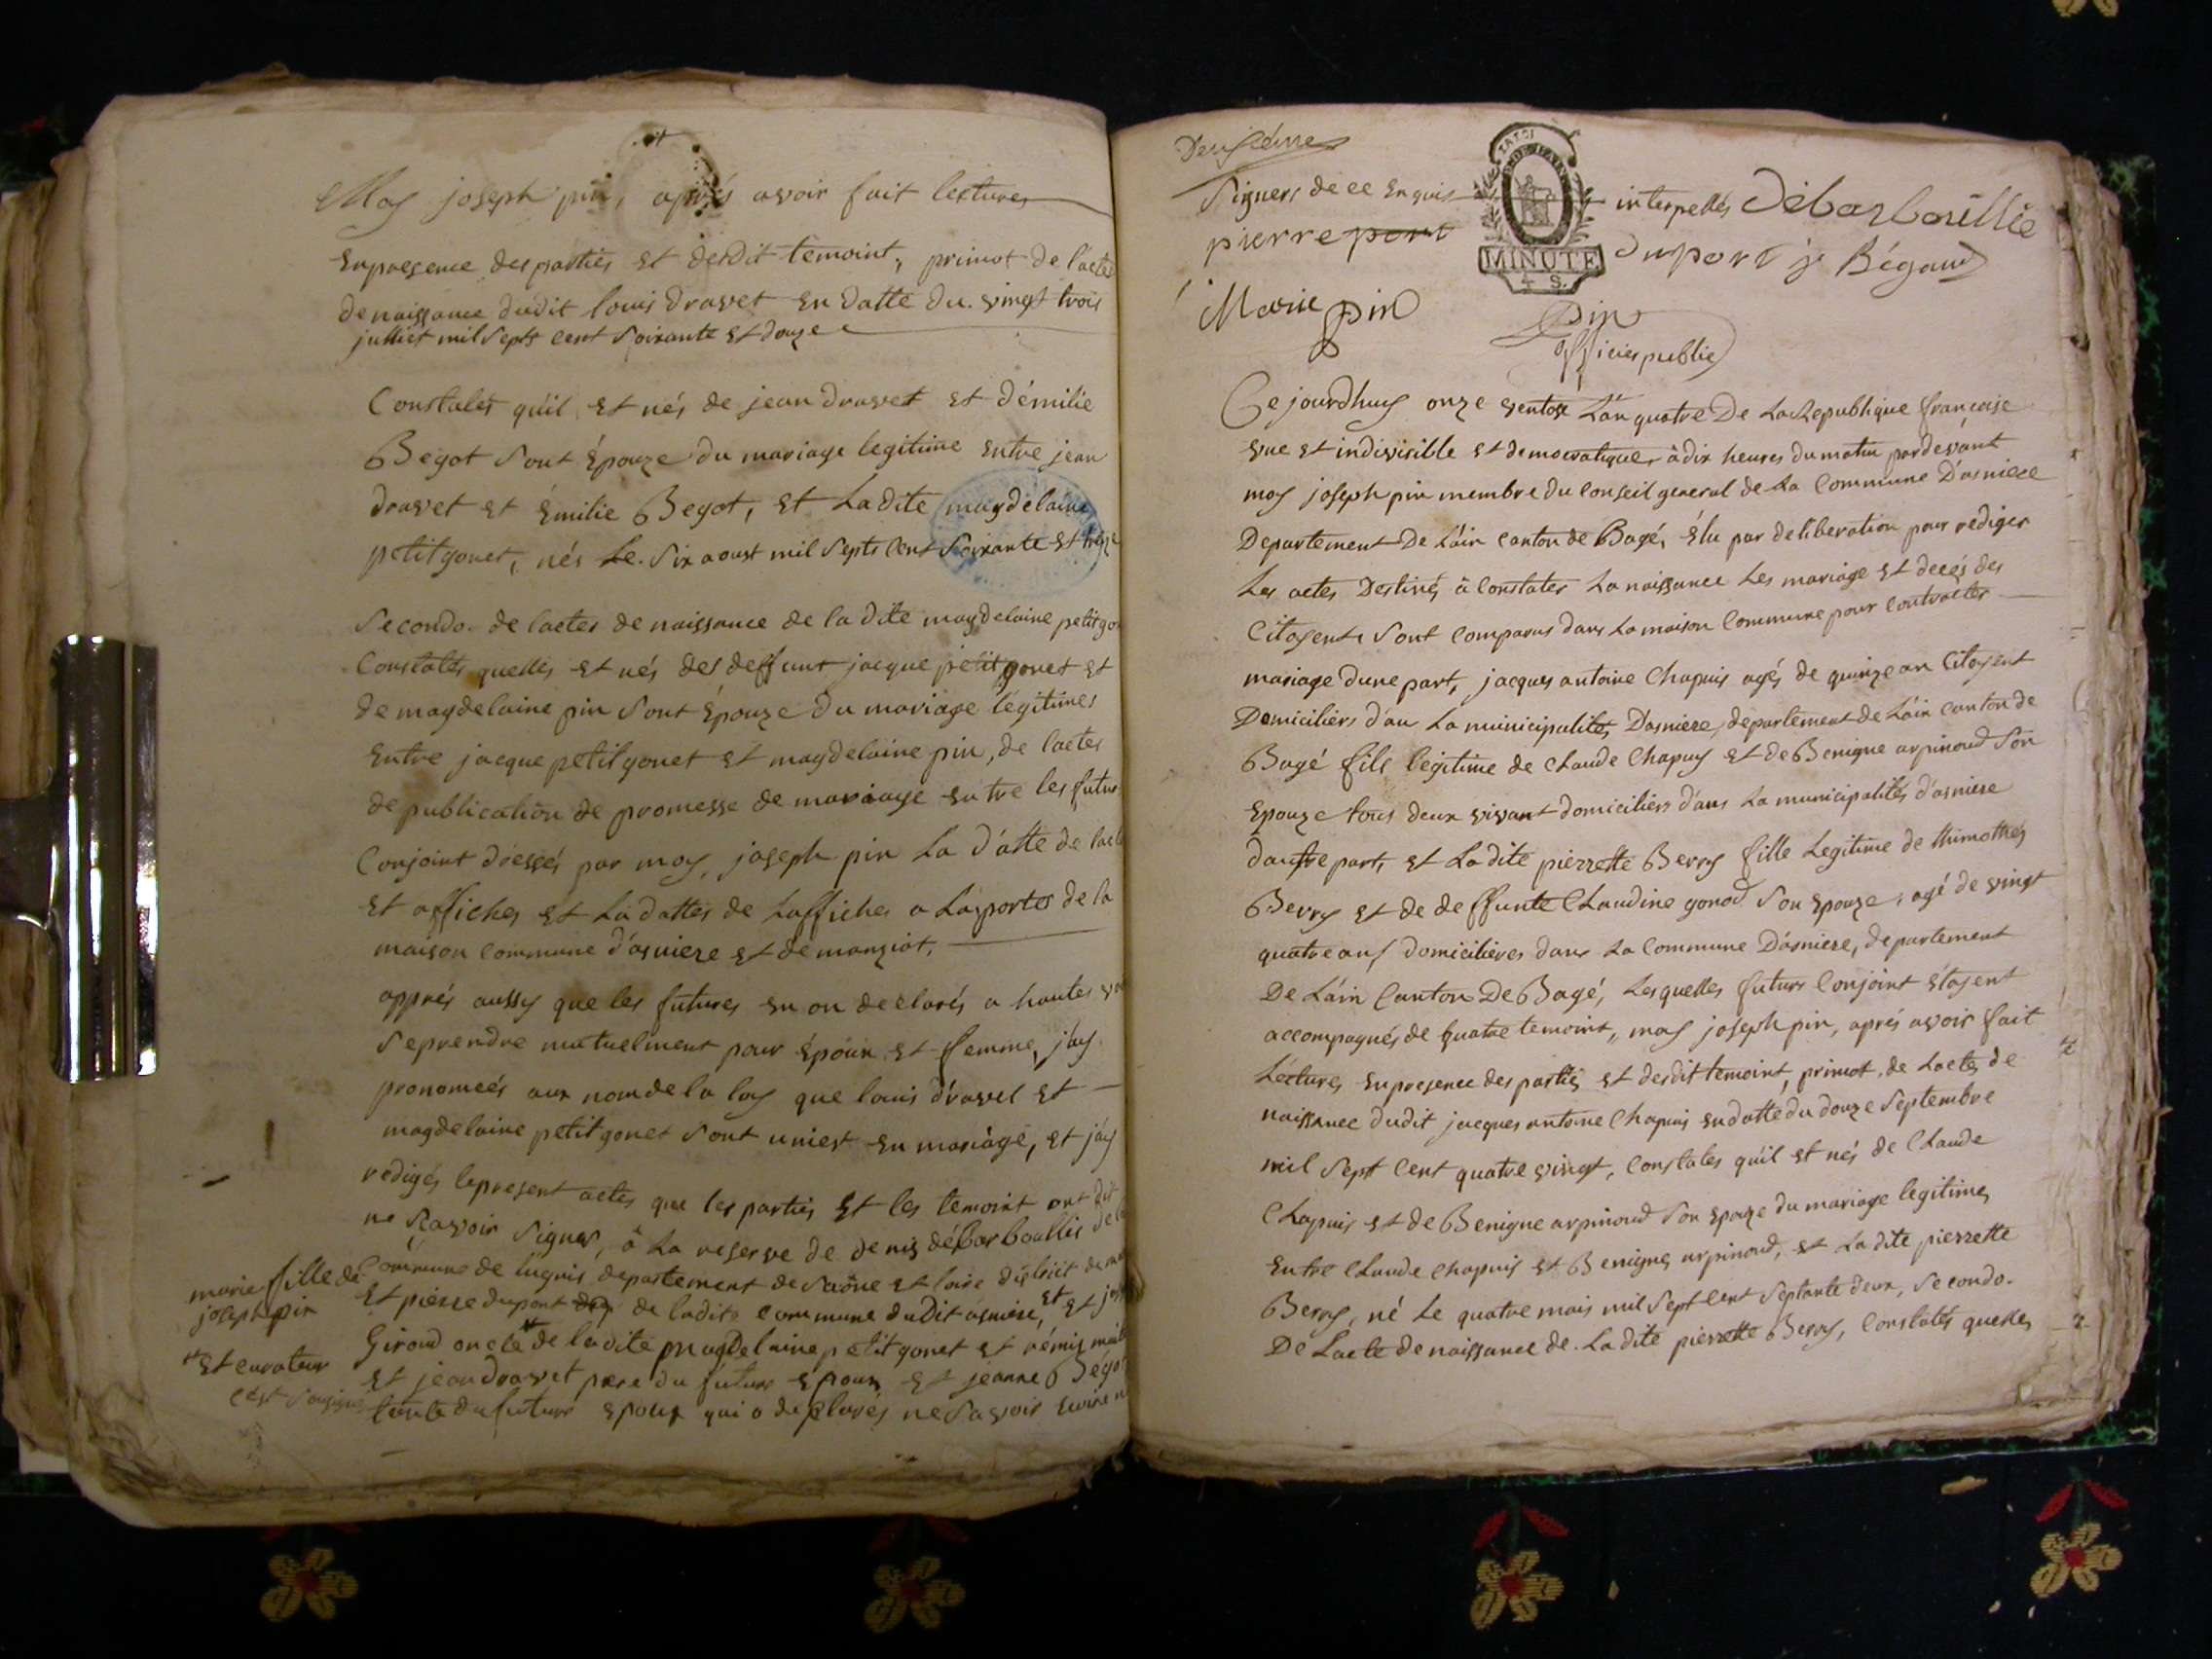 Moy joseph pin, aprés avoir fait lectures
En presence des parties et desdit temoint, primot de l'actes
de naissance dudit louis dravet en datte du vingt trois
julliet mil septs cent soixante et douze
Constatés qu'il et nés de jean dravet et d'émilie
Begot sont Épouze du mariage legitime entre jean
dravet et Émilie Begot, et La dite magdelaine
petitgonet, nés Le six aoust mil septs cent soixante et treize
Secondo de lactes de naissance de la dite magdelaine petitgo
Constatés quelles et nés des deffunt jacque petit gonet et
de magdelaine pin sont Épouze du mariage légitimes
Entre jacque petitgonet et magdelaine pin, de lactes
de publication de promesse de mariage entre les futur
Conjoint dressés par moy, joseph pin La d'atte de lacte
et affiches et La dattes de Laffiches a La portes de la
maison commune d'asniere et de manziat,
apprés aussy que les futures en on declarés a hautes voi
Se prendre mutuelment pour épour et femme, j'ay
prononceés aux nom de la loy que louis dravet et
magdelaine petit gonet sont uniest en mariage, et j'ay
redigés le present actes que les parties Et les temoint ont dit
ne sçavoir signer, â La reserve de denis débarboullis de la
Commune de lugnis departement de Saône et loire district de
marie fille de
joseph pin
Et pierre dupont de ladite commune dudit asniere, et et jos
Giroud oncle de ladite magdelaine petit gonet et rémis
Et curateur
et jean dravet pere du futur Epoux et jeanne Bego
c'est sousigné
tante du future Epoux qui a declarés ne savoir Ecrire n
Deuxième
Signers de ce Enquis interpellés Débarbouillie
pierre pont duport j Bégaud
MINUTE
4 S.
Marie pin pin
officier public
Ce jourdhuy onze ventose L'an quatre De La Republique francoise
une et indivisible et democratique, à dix heures du matin pardevant
moy joseph pin membre du Conseil general de La Commune D'asniere
Departement De L'ain canton de Bagé, élu par deliberation pour rediger
Les actes Destinés à Constater La naissance Les mariage et decés des
Citoyents sont comparus dans La maison Commune pour contracter
mariage dune part, jacques antoine Chapuis agés de quinze an Citoyent
Domiciliers dan La municipalités Dasniere, departement de L'ain canton de
Bagé fils legitime de Claude Chapuy et de Benigne arpinoud son
Epouze tous deux vivant domiciliers dans La municipalités d'asniere
dautre part, et La dite pierrette Berry fille Legitime de thimothés
Berry et de deffunte Claudine gonod son Epouze, agé de vingt
quatre ans domicilières dans La Commune Dasniere, departement
De L'ain Canton De Bagé, Lesquelles futurs Conjoint étoyent
accompagnés de quatre temoint, moy joseph pin, aprés avoir fait
Léctures En presence des parties et desdit temoint, primot, de Lactes de
naissance dudit jacques antoine Chapuis en datte du douze Septembre
mil Sept Cent quatre vingt, Constates qu'il et nés de Claude
Chapuis et de Benigne arpinoud son Epouze du mariage legitimes
Entre Claude Chapuis et Benignes arpinoud, et La dite pierrette
Berry, né Le quatre mais mil Sept Cent Septante deux, Secondo.
De Lacte de naissance de La dite pierrette Berry, Constatés quelles